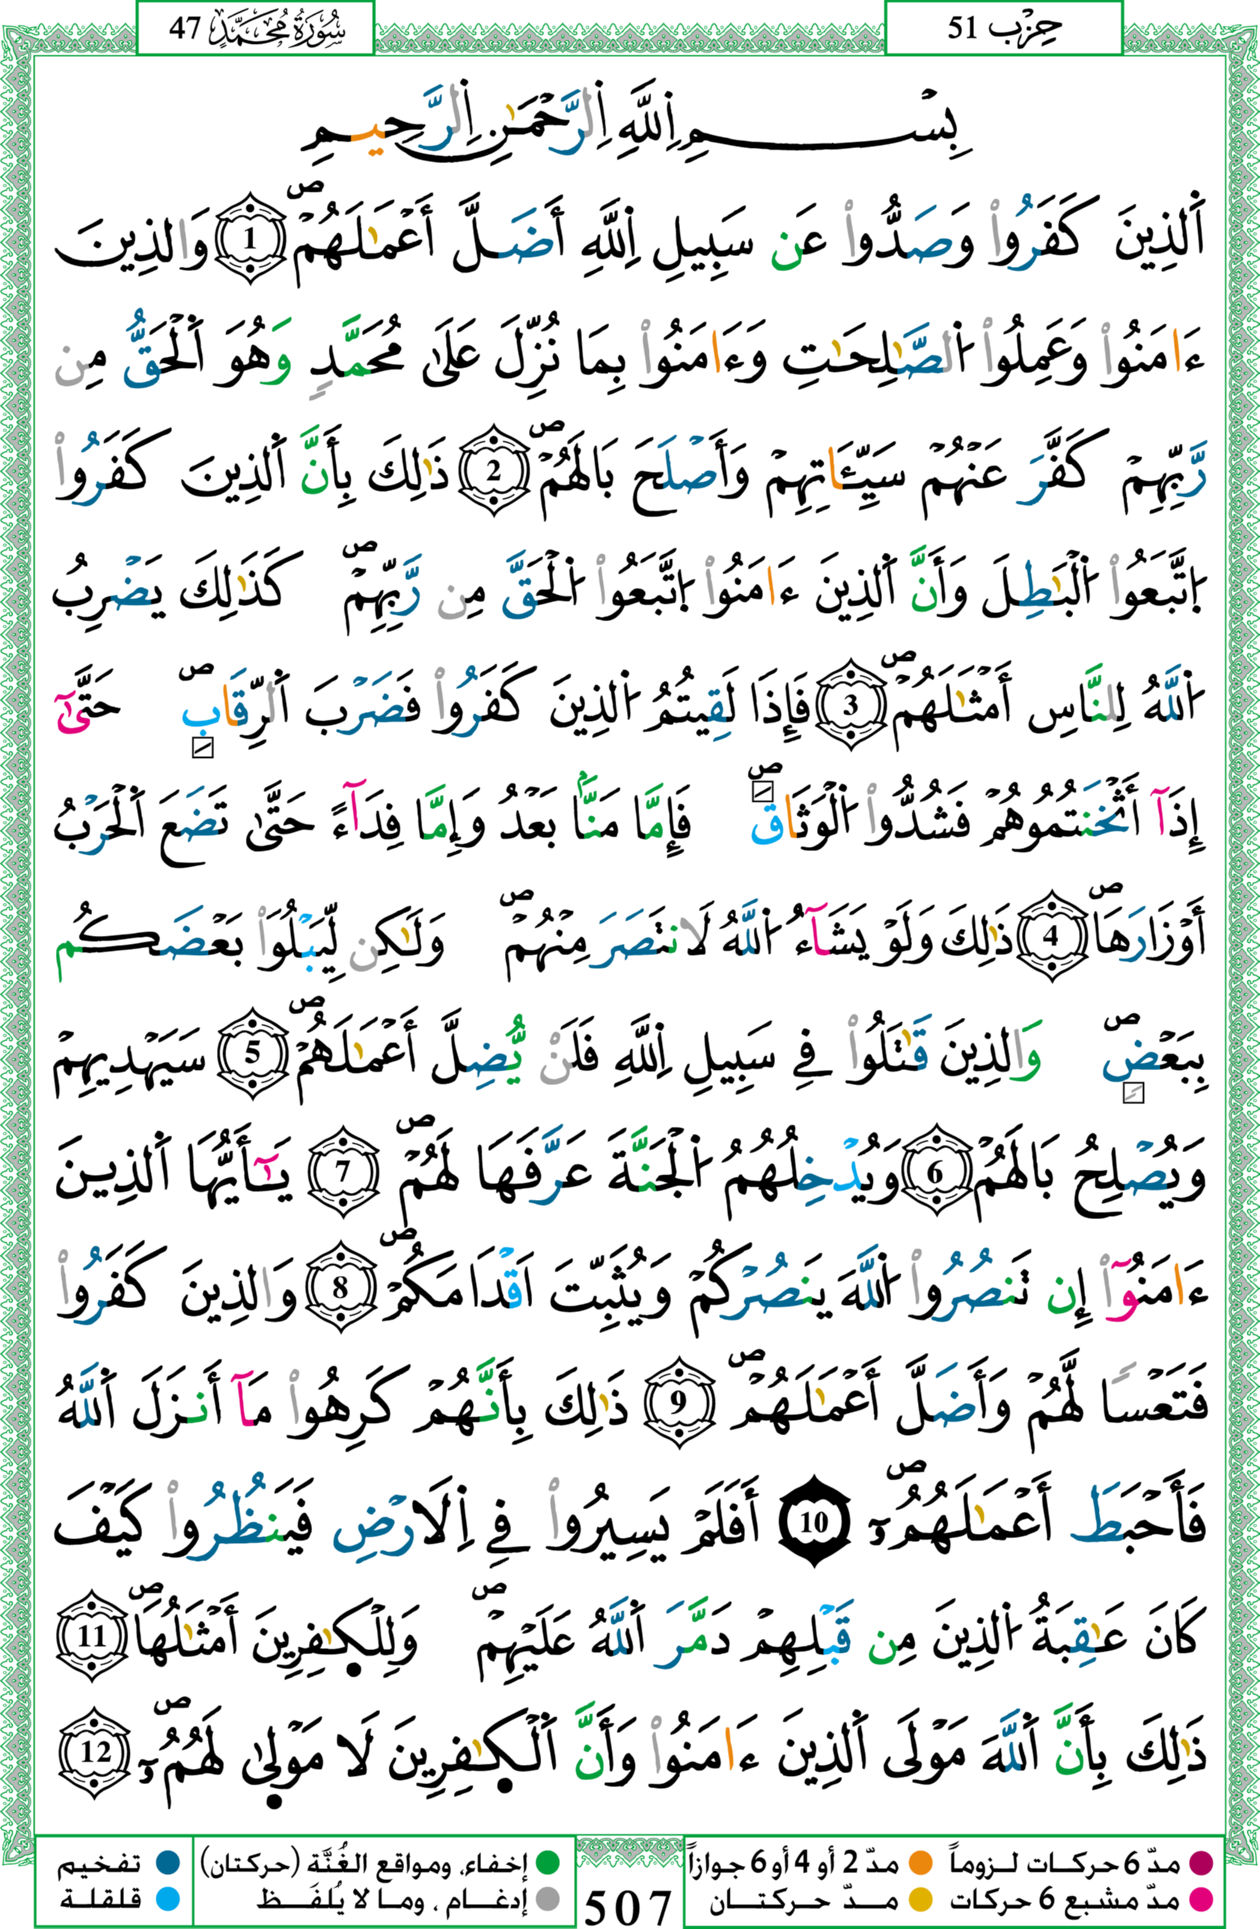 حِزْب 51
سُورَةُ مُحَمَّدٍ 47
بِسْمِ اِ۬للَّهِ اِ۬لرَّحْمَٰنِ اِ۬لرَّحِيمِ
اَ۬لذِينَ كَفَرُواْ وَصَدُّواْ عَن سَبِيلِ اِ۬للَّهِ أَضَلَّ أَعْمَٰلَهُمْۖ 1 وَالذِينَ
ءَامَنُواْ وَعَمِلُواْ اُ۬لصَّٰلِحَٰتِ وَءَامَنُواْ بِمَا نُزِّلَ عَلَىٰ مُحَمَّدٖ وَهُوَ اَ۬لْحَقُّ مِن
رَّبِّهِمْ كَفَّرَ عَنْهُمْ سَيِّـَٔاتِهِمْ وَأَصْلَحَ بَالَهُمْۖ 2 ذَٰلِكَ بِأَنَّ اَ۬لذِينَ كَفَرُواْ
اُ۪تَّبَعُواْ اُ۬لْبَٰطِلَ وَأَنَّ اَ۬لذِينَ ءَامَنُواْ اُ۪تَّبَعُواْ اُ۬لْحَقَّ مِن رَّبِّهِمْۖ كَذَٰلِكَ يَضْرِبُ
اُ۬للَّهُ لِلنَّاسِ أَمْثَٰلَهُمْۖ 3 فَإِذَا لَقِيتُمُ اُ۬لذِينَ كَفَرُواْ فَضَرْبَ اَ۬لرِّقَابِۖ حَتَّىٰٓ
إِذَآ أَثْخَنتُمُوهُمْ فَشُدُّواْ اُ۬لْوَثَاقَۖ فَإِمَّا مَنَّۢا بَعْدُ وَإِمَّا فِدَآءً حَتَّىٰ تَضَعَ اَ۬لْحَرْبُ
أَوْزَارَهَاۖ 4 ذَٰلِكَ وَلَوْ يَشَآءُ اُ۬للَّهُ لَانتَصَرَ مِنْهُمْۖ وَلَٰكِن لِّيَبْلُوَاْ بَعْضَكُم
بِبَعْضٖۖ وَالذِينَ قَٰتَلُواْ فِے سَبِيلِ اِ۬للَّهِ فَلَنْ يُّضِلَّ أَعْمَٰلَهُمْۖ 5 سَيَهْدِيهِمْ
وَيُصْلِحُ بَالَهُمْ 6 وَيُدْخِلُهُمُ اُ۬لْجَنَّةَ عَرَّفَهَا لَهُمْۖ 7 يَٰٓأَيُّهَا اَ۬لذِينَ
ءَامَنُوٓاْ إِن تَنصُرُواْ اُ۬للَّهَ يَنصُرْكُمْ وَيُثَبِّتَ اَقْدَامَكُمْۖ 8 وَالذِينَ كَفَرُواْ
فَتَعْساٗ لَّهُمْ وَأَضَلَّ أَعْمَٰلَهُمْۖ 9 ذَٰلِكَ بِأَنَّهُمْ كَرِهُواْ مَآ أَنزَلَ اَ۬للَّهُ
فَأَحْبَطَ أَعْمَٰلَهُمُۥٓۖ 10 أَفَلَمْ يَسِيرُواْ فِے اِ۬لَارْضِ فَيَنظُرُواْ كَيْفَ
كَانَ عَٰقِبَةُ اُ۬لذِينَ مِن قَبْلِهِمْ دَمَّرَ اَ۬للَّهُ عَلَيْهِمْۖ وَلِلْكٰ۪فِرِينَ أَمْثَٰلُهَاۖ 11
ذَٰلِكَ بِأَنَّ اَ۬للَّهَ مَوْلَى اَ۬لذِينَ ءَامَنُواْ وَأَنَّ اَ۬لْكٰ۪فِرِينَ لَا مَوْل۪ىٰ لَهُمُۥٓۖ 12
مدّ 6 حركات لـزوماً مدّ 2 أو 4 أو 6 جوازاً إخفاء، ومواقع الغُنَّة (حركتان) تفخيم
مدّ مشبع 6 حركات مدّ حركتان إدغام ، وما لا يُلفَظ قلقلة
507